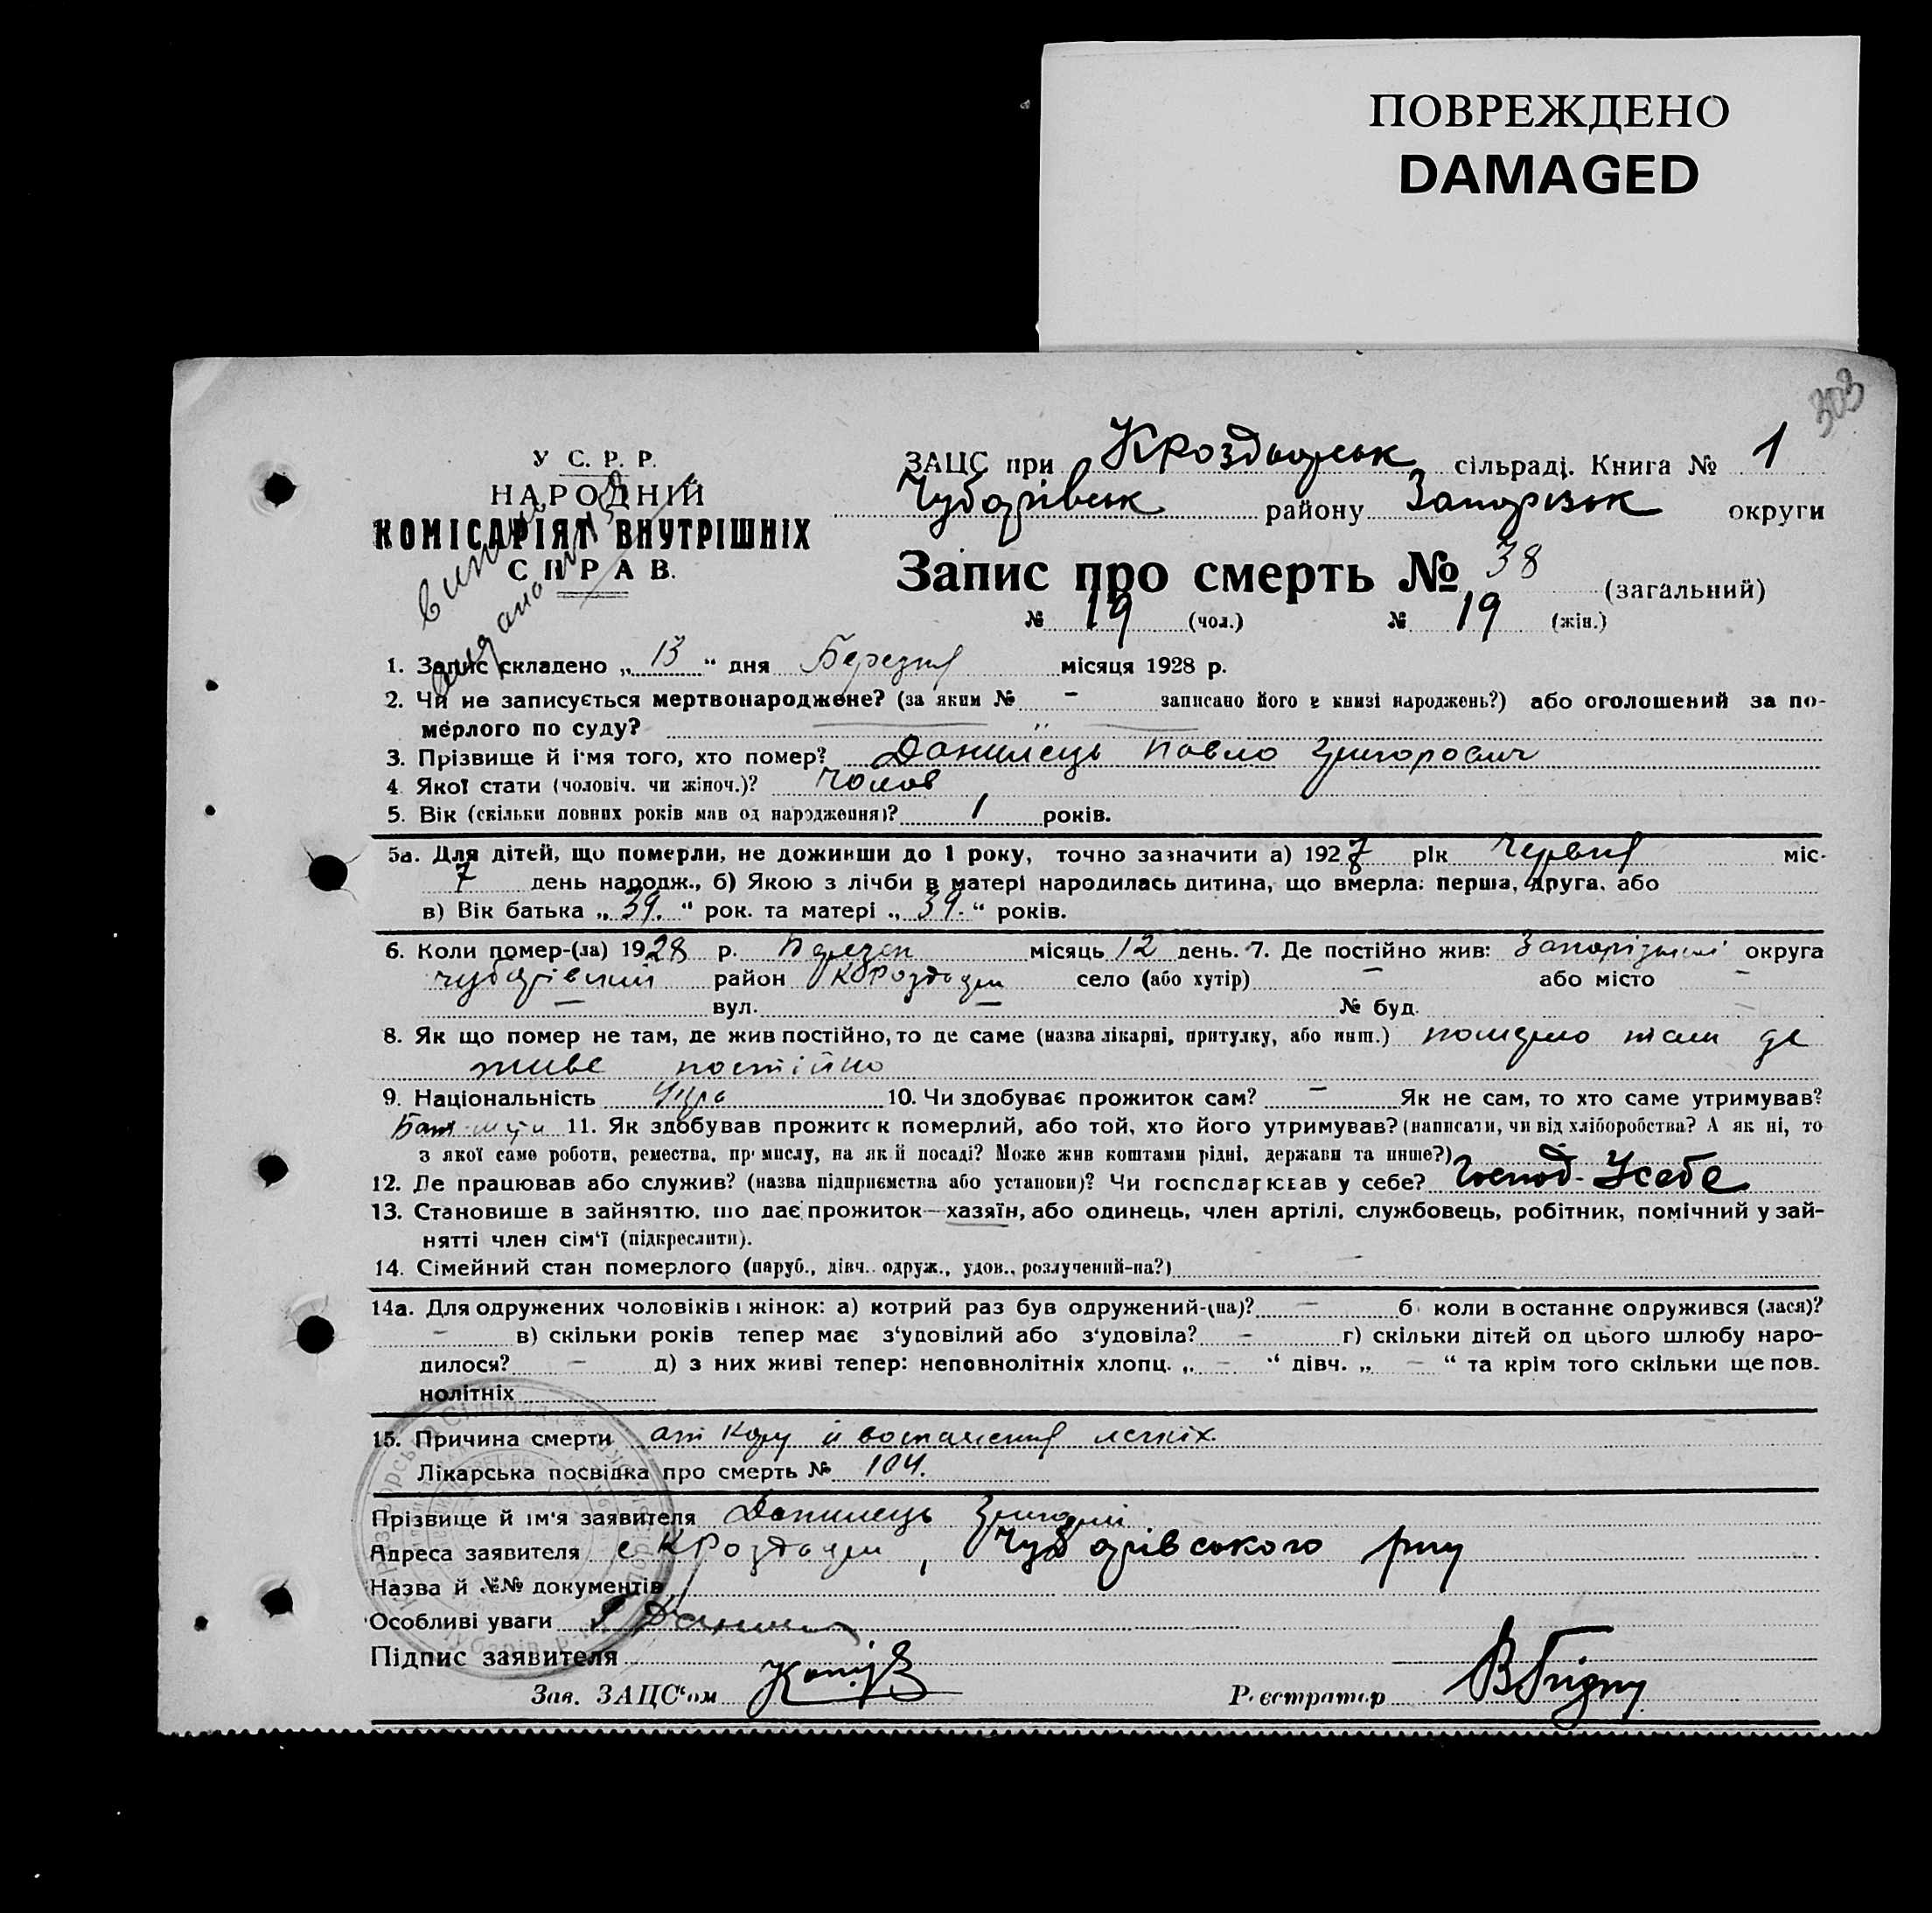 ПОВРЕЖДЕНО
DAMAGED
303
У С. Р. Р.
НАРОДНІЙ
КОМІСАРІЯТ ВНУТРІШНІХ
СПРАВ.
ЗАЦС при Кроздорськ сільраді. Книга № 1
Чубарівськ району Запорізьк округи
Запис про смерть № 38 (загальний)
№ 19 (чол.) № 19 (жін.)
1. Запис складено „ 13 “ дня Березня місяця 1928 р.
2. Чи не записується мертвонароджене? (за яким № - записано його в книзі народжень?) або оголошений за по-
мерлого по суду?
3. Прізвище й ім'я того, хто помер? Данилець Павло Григорович
4. Якої стати (чоловіч. чи жіноч.)? Чолов
5. Вік (скільки повних років мав од народження)? 1 років.
5а. Для дітей, що померли, не доживши до 1 року, точно зазначити а) 1927 рік Червня міс.
7 день народж., б) Якою з лічби в матері народилась дитина, що вмерла: перша, друга, або
в) Вік батька „ 39. “ рок. та матері „ 39. “ років.
6. Коли помер-(ла) 1928 р. Березен місяць 12 день. 7. Де постійно жив: Запорізький округа
Чубарівський район КРоздори село (або хутір) - або місто -
- вул. - № буд.
8. Як що помер не там, де жив постійно, то де саме (назва лікарні, притулку, або инш.) померло там де
живе постійно
9. Національність Укр 10. Чи здобуває прожиток сам? - Як не сам, то хто саме утримував?
11. Як здобував прожиток померлий, або той, хто його утримував? (написати, чи від хліборобства? А як ні, то
з якої саме роботи, ремества, промислу, на якій посаді? Може жив коштами рідні, держави та инше?)
12. Де працював або служив? (назва підприємства або установи)? Чи господарював у себе? Господ- Усебе
13. Становише в зайняттю, що дає прожиток—хазяїн, або одинець, член артілі, службовець, робітник, помічний у зай-
нятті член сім'ї (підкреслити).
14. Сімейний стан померлого (паруб., дівч. одруж., удов., розлучений-на?)
14а. Для одружених чоловіків і жінок: а) котрий раз був одружений-(на)? - б коли востаннє одружився (лася)?
- в) скільки років тепер має з'удовілий або з'удовіла? - г) скільки дітей од цього шлюбу наро-
дилося? - д) з них живі тепер: неповнолітніх хлопц. „ - “ дівч. „ - “ та крім того скільки ще пов.
нолітніх
15. Причина смерти от кору й воспаления легких.
Лікарська посвідка про смерть № 104.
Прізвище й ім'я заявителя Данилець Григорій
Адреса заявителя с КРоздори, Чубарівського рну
Назва й №№ документів
Особливі уваги
Підпис заявителя
Зав. ЗАЦС'ом
Реєстратор